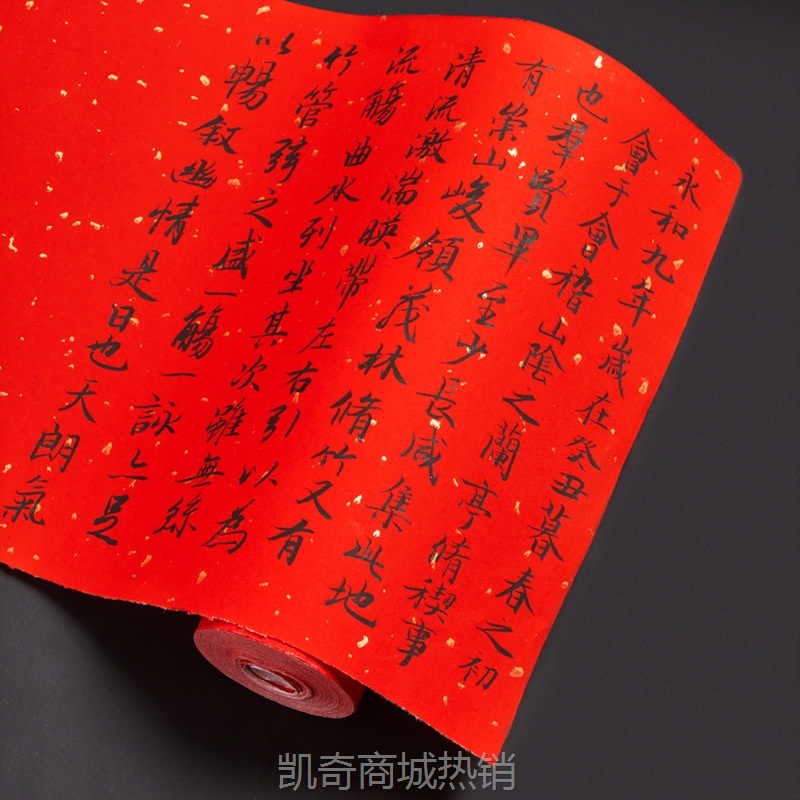 永和九年歲在癸丑暮春之初
會于會稽山陰之蘭亭脩稧事
也羣賢畢至少長咸集此地
有崇山峻領茂林脩竹又有
清流激湍暎帶左右引以為
流觴曲水列坐其次雖無絲
竹管弦之盛一觴一詠亦足
以暢叙幽情是日也天朗氣
凯奇商城热销